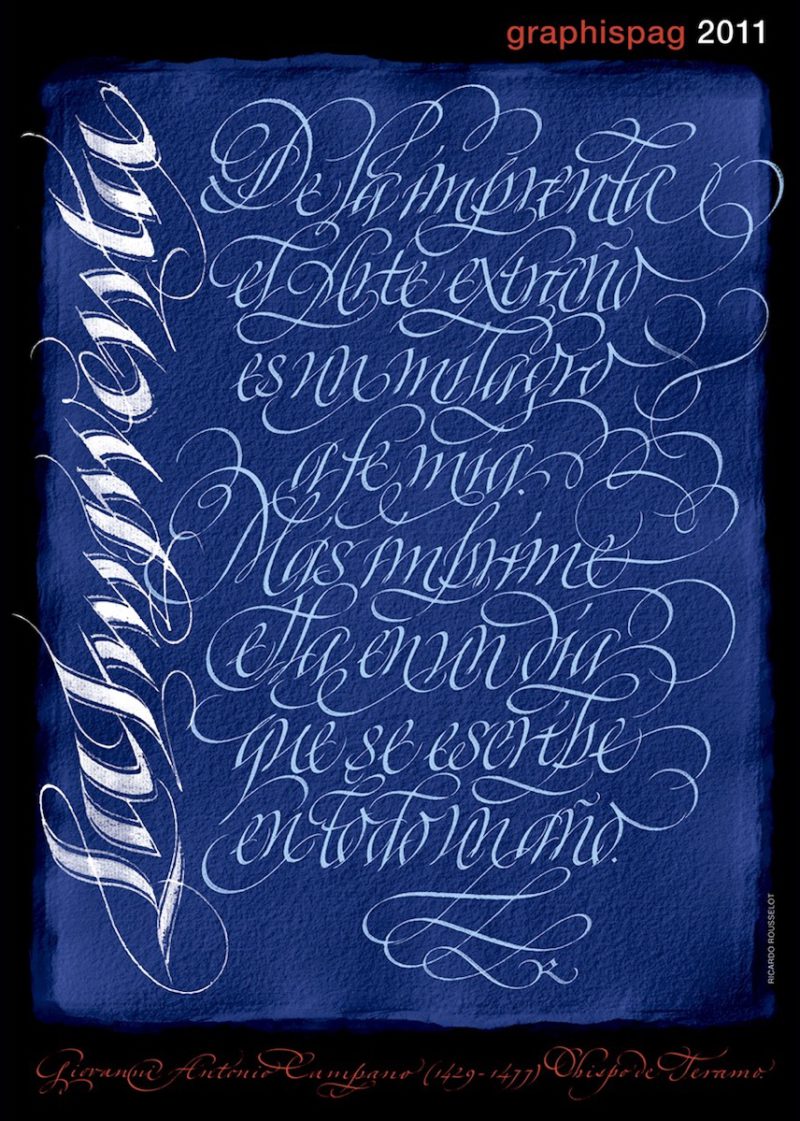 graphispag 2011
La Imprenta
De la imprenta
el Arte extraño
es un milagro
a fe mía.
Más imprime
ella en un día
que se escribe
en todo un año.
RICARDO ROUSSELOT
Giovanni António Campano (1429-1477) Obispo de Teramo.